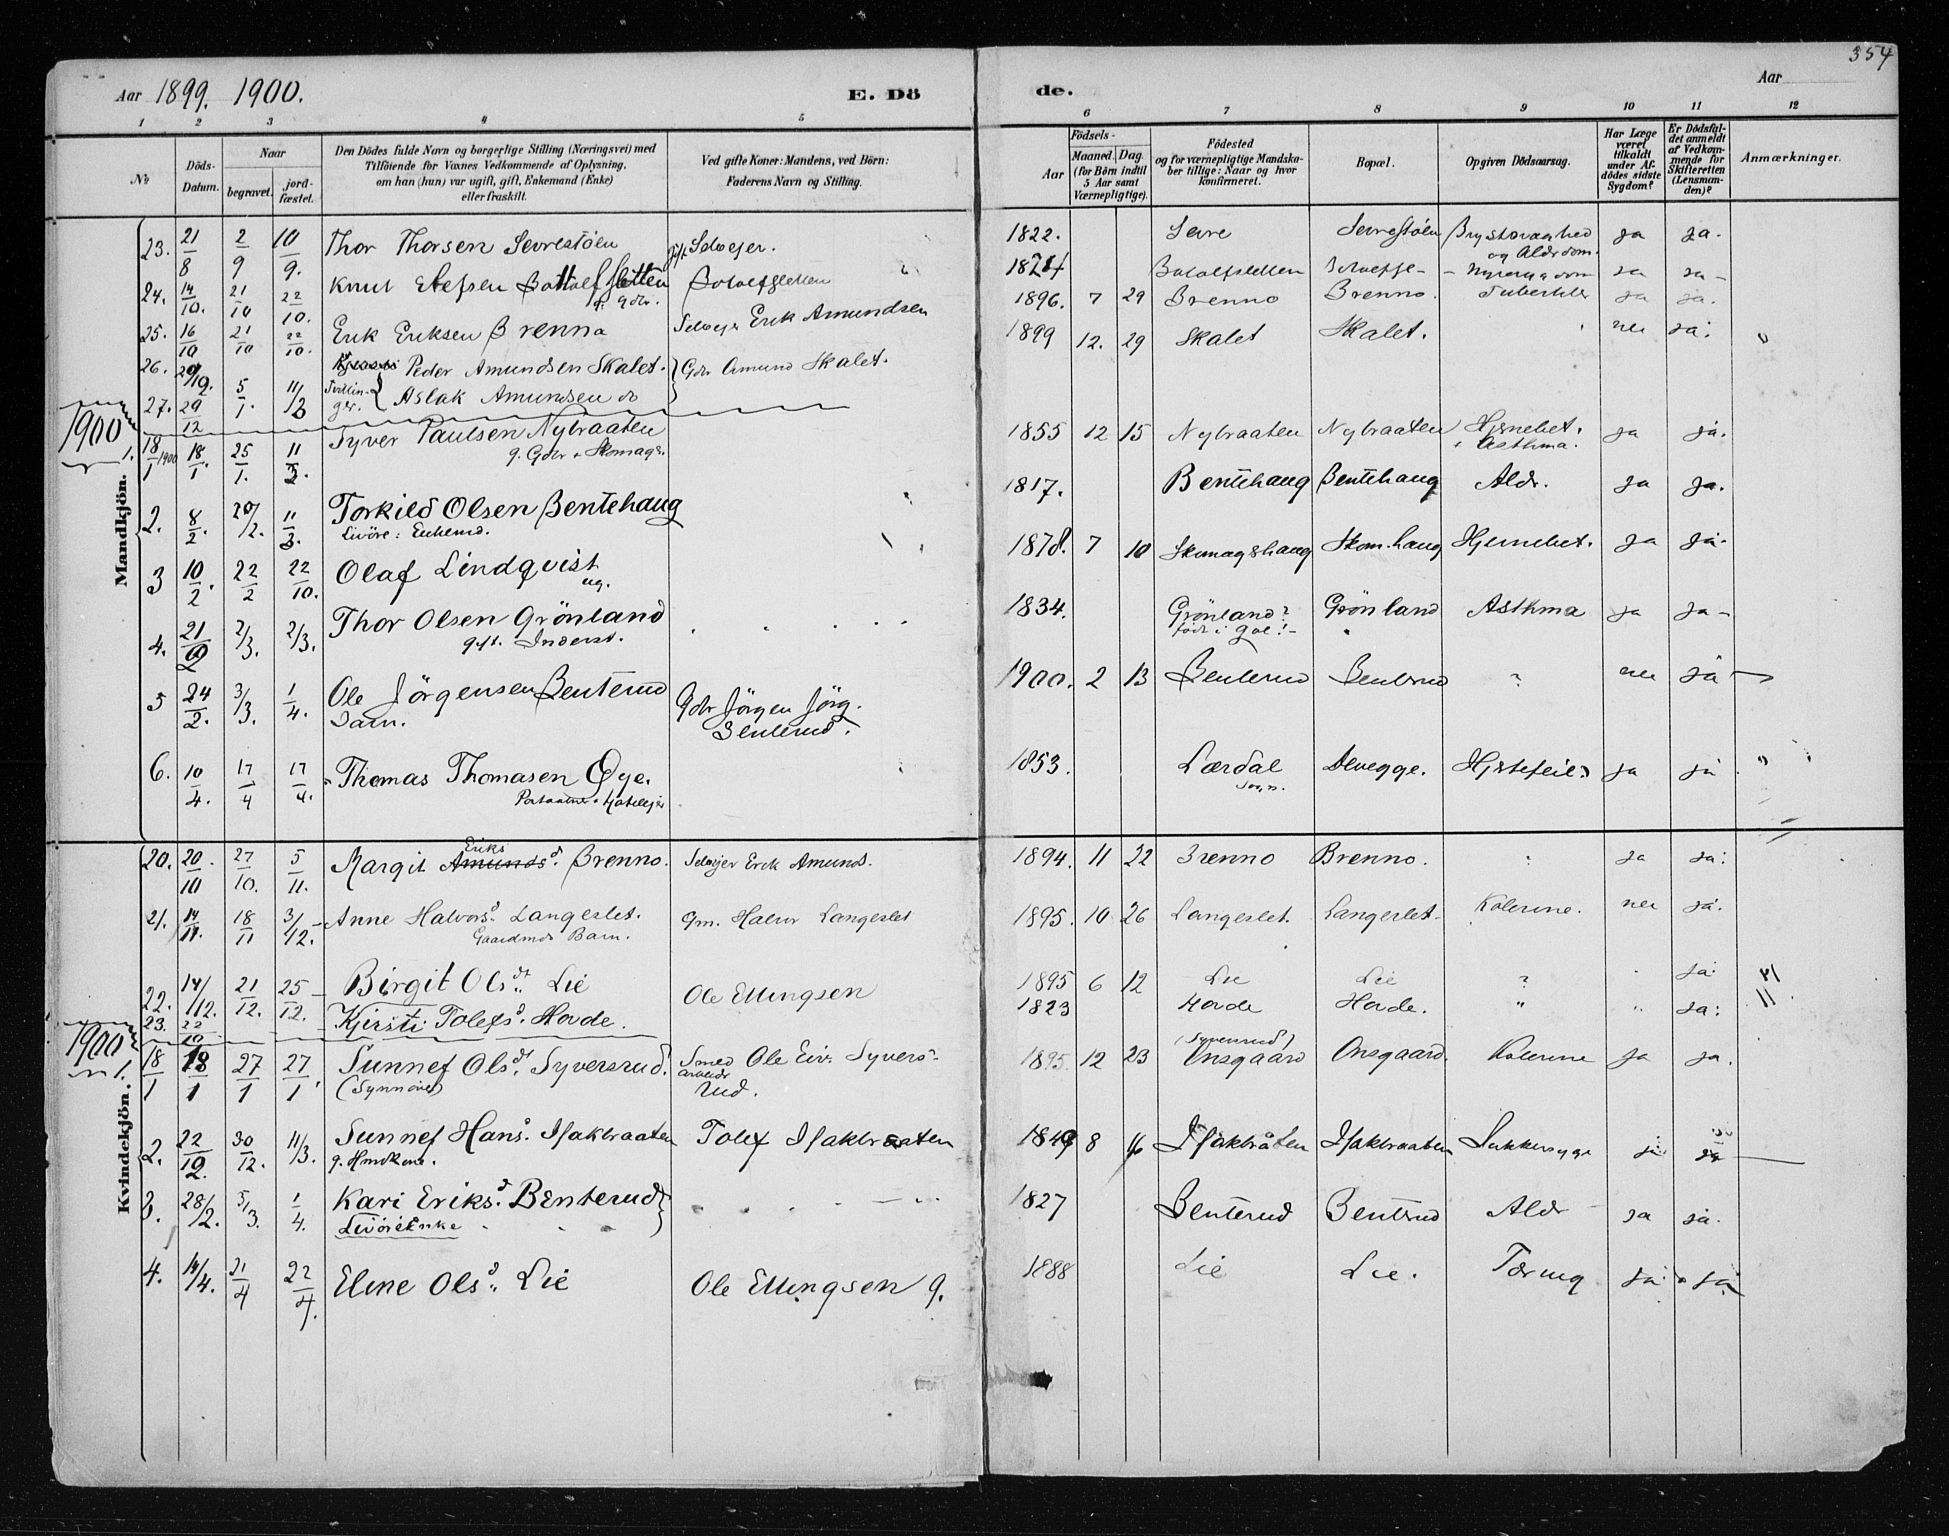 354
Aar 1899. 1900. E. Dö de. Aar
1 2 3 4 5 6 7 8 9 10 11 12
No Döds-Datum. Naar begravet. jord-fæstet. Den Dödes fulde Navn og borgerlige Stilling (Næringsvei) med Tilföiende for Voxnes Vedkommende af Oplysning, om han (hun) var ugift, gift, Enkemand (Enke) eller fraskilt. Ved gifte Koner: Mandens, ved Börn: Faderens Navn og Stilling. Födsels- Aar Maaned. Dag. (for Börn indtil 5 Aar samt Værnepligtige). Födested og for værnepligtige Mandskaber tillige: Naar og hvor konfirmeret. Bopæl. Opgiven Dödsaarsag. Har Læge været tilkaldt under Afdödes sidste Sygdom? Er Dödsfaldet anmeldt af Vedkommende for Skifteretten (Lensmanden)? Anmærkninger.
Mandkjön.
23. 21/8 2/9 10/9. Thor Thorsen Sevrestöen gift Selveier. 1822. Sevre Sevrestöen Brystsvaghed og Alderdom. ja ja.
24. 14/10. 21/10 22/10. Knut Botolfsletten g. Gdbr. Botolfsletten 1824 Botolfsletten ja ja
25. 16/10 21/10 22/10. Erik Eriksen Brenno Selveier Erik Amundsen 1896. 7 29 Brenno Brenno. Tuberkler ja ja.
26. 29/12. 5/1. 11/3 Peder Amundsen Skalet. Gdbr Amund Skalet. 1899 12. 29 Skalet Skalet. nei ja. "
27. 29/12 Tvillinger. Aslak Amundsen do
1900
1. 18/1 1900 18/1. 25/1. 11/3. Syver Paulsen Nybraaten 1855 12 15 Nybraaten Nybraaten Hjernebet. + Asthma. ja ja.
g. Gdbr + Skomagr.
2. 8/2. 20/2. 11/3. Torkild Olsen Bentehaug 1817. Bentehaug Bentehaug Aldr. ja ja.
Livöre: Enkemd.
3 10/2. 22/2 22/10. Olaf Lindqvist ug. 1878. 7 10 Skomagshaug Skom.haug Hjernebet. ja ja.
4. 21/2 2/3. 2/3. Thor Olsen Grönland 1834. Grönland? Grönland Asthma ja ja
gift. Inderst. född i Gol!
5 24/2. 3/3. 1/4. Ole Jörgensen Benterud Gdbr Jörgen Jörg. 1900. 2 13 Benterud Benterud ? nei ja
Barn. Benterud.
6. 10/4. 17/4 17/4. Thomas Thomasen Öye. 1853. Lærdal Hjertefeil ja ja "
Sogn.
Kvindekjön.
20. 20/10 27/10. 5/11. Margit Amundsd. Eriks Brenno. Selveier Erik Amunds. 1894. 11 22 Brenno Brenno. ja ja.
21. 14/11. 18/11 3/12. Anne Halvorsd. Langeslet. Gm. Halvor Langeslet 1895. 10 26 Langeslet. Langerslet. Kolerine. nei ja.
Gaardmds Barn.
22. 14/12. 21/12. 25/12. Birgit Olsdt. Lie Ole Ellingsen 1895 6 12 Lie Lie ? ja.
23. 22/10 Kjersti Tolefsd. Hovde. 1823 Hovde Hovde. " " ja.
1900
1. 18/1 18/1 27/1 27/1. Sunnef Olsdt. Syversrud. Smed Ole Eiv. Syvers- 1895. 12 23 (Syversrud) Onsgaard Onsgaard. Kolerine ja ja.
(Synnöve) arbeidr rud.
2. 22/12. 30/12. 11/3. Sunnef Hansd. Isakbraaten Tolef Isakbraaten 1849 8 Isakbråten Isakbraaten Sukkersyge ja ja
3. 28/2. 5/3. 1/4. Kari Eriksd. Benterud 1827 Benterud Benterud Aldr ja ja.
Livöreenke
4. 14/4. 21/4 22/4. Eline Olsd. Lie Ole Ellingsen g. 1888 Lie Lie. Tæring ja ja